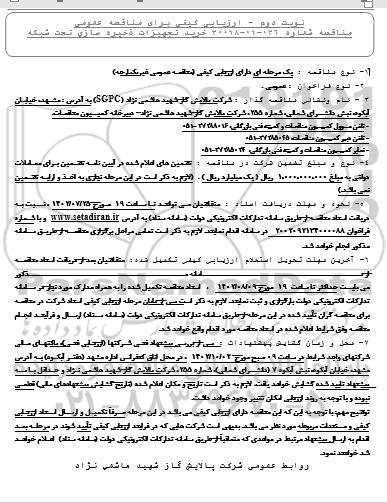 نوبت دوم - ارزیابی کیفی برای مناقصه عمومی
مناقصه شماره ۰۲۶-۰۱-۳۰۰۱۸ خرید تجهیزات ذخیره سازی تحت شبکه
۱- نوع مناقصه : یک مرحله ای دارای ارزیابی کیفی (مناقصه عمومی غیریکپارچه)
۲- نوع فراخوان : عمومی.
۳- نام ونشانی مناقصه گذار : شرکت پالایش گاز شهید هاشمی نژاد (SGPC) به آدرس : مشهد، خیابان
آبکوه، نبش دانشسرای شمالی، شماره ۲۵۵، شرکت پالایش گاز شهید هاشمی نژاد - دبیرخانه کمیسیون مناقصات.
۴- نوع و مبلغ تضمین شرکت در مناقصه : تضمین های اعلام شده در آیین نامه تضمین برای معاملات
دولتی به مبلغ ۱,۰۰۰,۰۰۰,۰۰۰ ریال ( یک میلیارد ریال ) . (لازم به ذکر است در این مرحله نیازی به اخذ و ارایه تضمین
نمی باشد.)
۵- نحوه و مهلت دریافت اسناد : متقاضیان می توانند تا ساعت ۱۹ مورخ ۱۴۰۲/۰۷/۲۵ نسبت به
دریافت اسناد مناقصه از طریق سامانه تدارکات الکترونیکی دولت (سامانه ستاد) به آدرس www.setadiran.ir و با شماره
فراخوان ۲۰۰۲۰۹۲۱۲۴۰۰۰۰۸۸ در سامانه اقدام نمایند. لازم به ذکر است تمامی مراحل برگزاری مناقصه از طریق سامانه
مذکور انجام خواهد شد.
۶- آخرین مهلت تحویل استعلام ارزیابی کیفی تکمیل شده: متقاضیان بعد از دریافت اسناد مناقصه
از سامانه مذکور
می بایست حداکثر تا ساعت ۱۹ مورخ ۱۴۰۲/۰۸/۰۹ ، اسناد مناقصه تکمیل شده را به همراه مدارک مورد نیاز در سامانه
تدارکات الکترونیکی دولت بارگذاری و ثبت نمایند. لازم به ذکر است
برای مناقصه گران تأیید شده در این مرحله از طریق سامانه تدارکات الکترونیکی دولت (سامانه ستاد) ارسال و فرآیند انجام
مناقصه وفق شرایط اعلام شده در اسناد مناقصه مورد اقدام واقع خواهد شد.
۷- محل و زمان گشایش پیشنهادات : پس از بررسی پیشنهاد فنی شرکتها (ارزیابی فنی) پاکتهای مالی
شرکتهای واجد شرایط در ساعت ۰۹ صبح مورخ ۱۴۰۲/۱۰/۰۲ ، در محل اتاق کنفرانس اداره مشهد (دفتر آبکوه) به آدرس
مشهد، خیابان آبکوه، نبش آبکوه ۷ (دانشسرای شمالی)، شماره ۲۵۵، شرکت پالایش گاز شهید هاشمی نژاد و حداقل با سه
پیشنهاد تایید شده گشایش خواهد یافت. لازم به ذکر است تاریخ و مکان اعلام شده (تاریخ گشایش پیشنهادهای مالی) قطعی
نبوده و با توجه به روند ارزیابی امکان تغییر وجود خواهد داشت.
توضیح مهم: با توجه به این که این مناقصه دارای ارزیابی کیفی می باشد در این مرحله صرفا تکمیل و ارسال اسناد ارزیابی
کیفی و مستندات مربوطه مورد نظر می باشد. بدیهی است شرکت هایی که در فرایند ارزیابی کیفی تأیید شوند در مرحله بعد
اقدام به ارسال پیشنهاد مرتبط در مواعدی که متعاقباً از طریق سامانه تدارکات الکترونیکی دولت (سامانه ستاد) اعلام خواهد
شد خواهند نمود.
روابط عمومی شرکت پالایش گاز شهید هاشمی نژاد